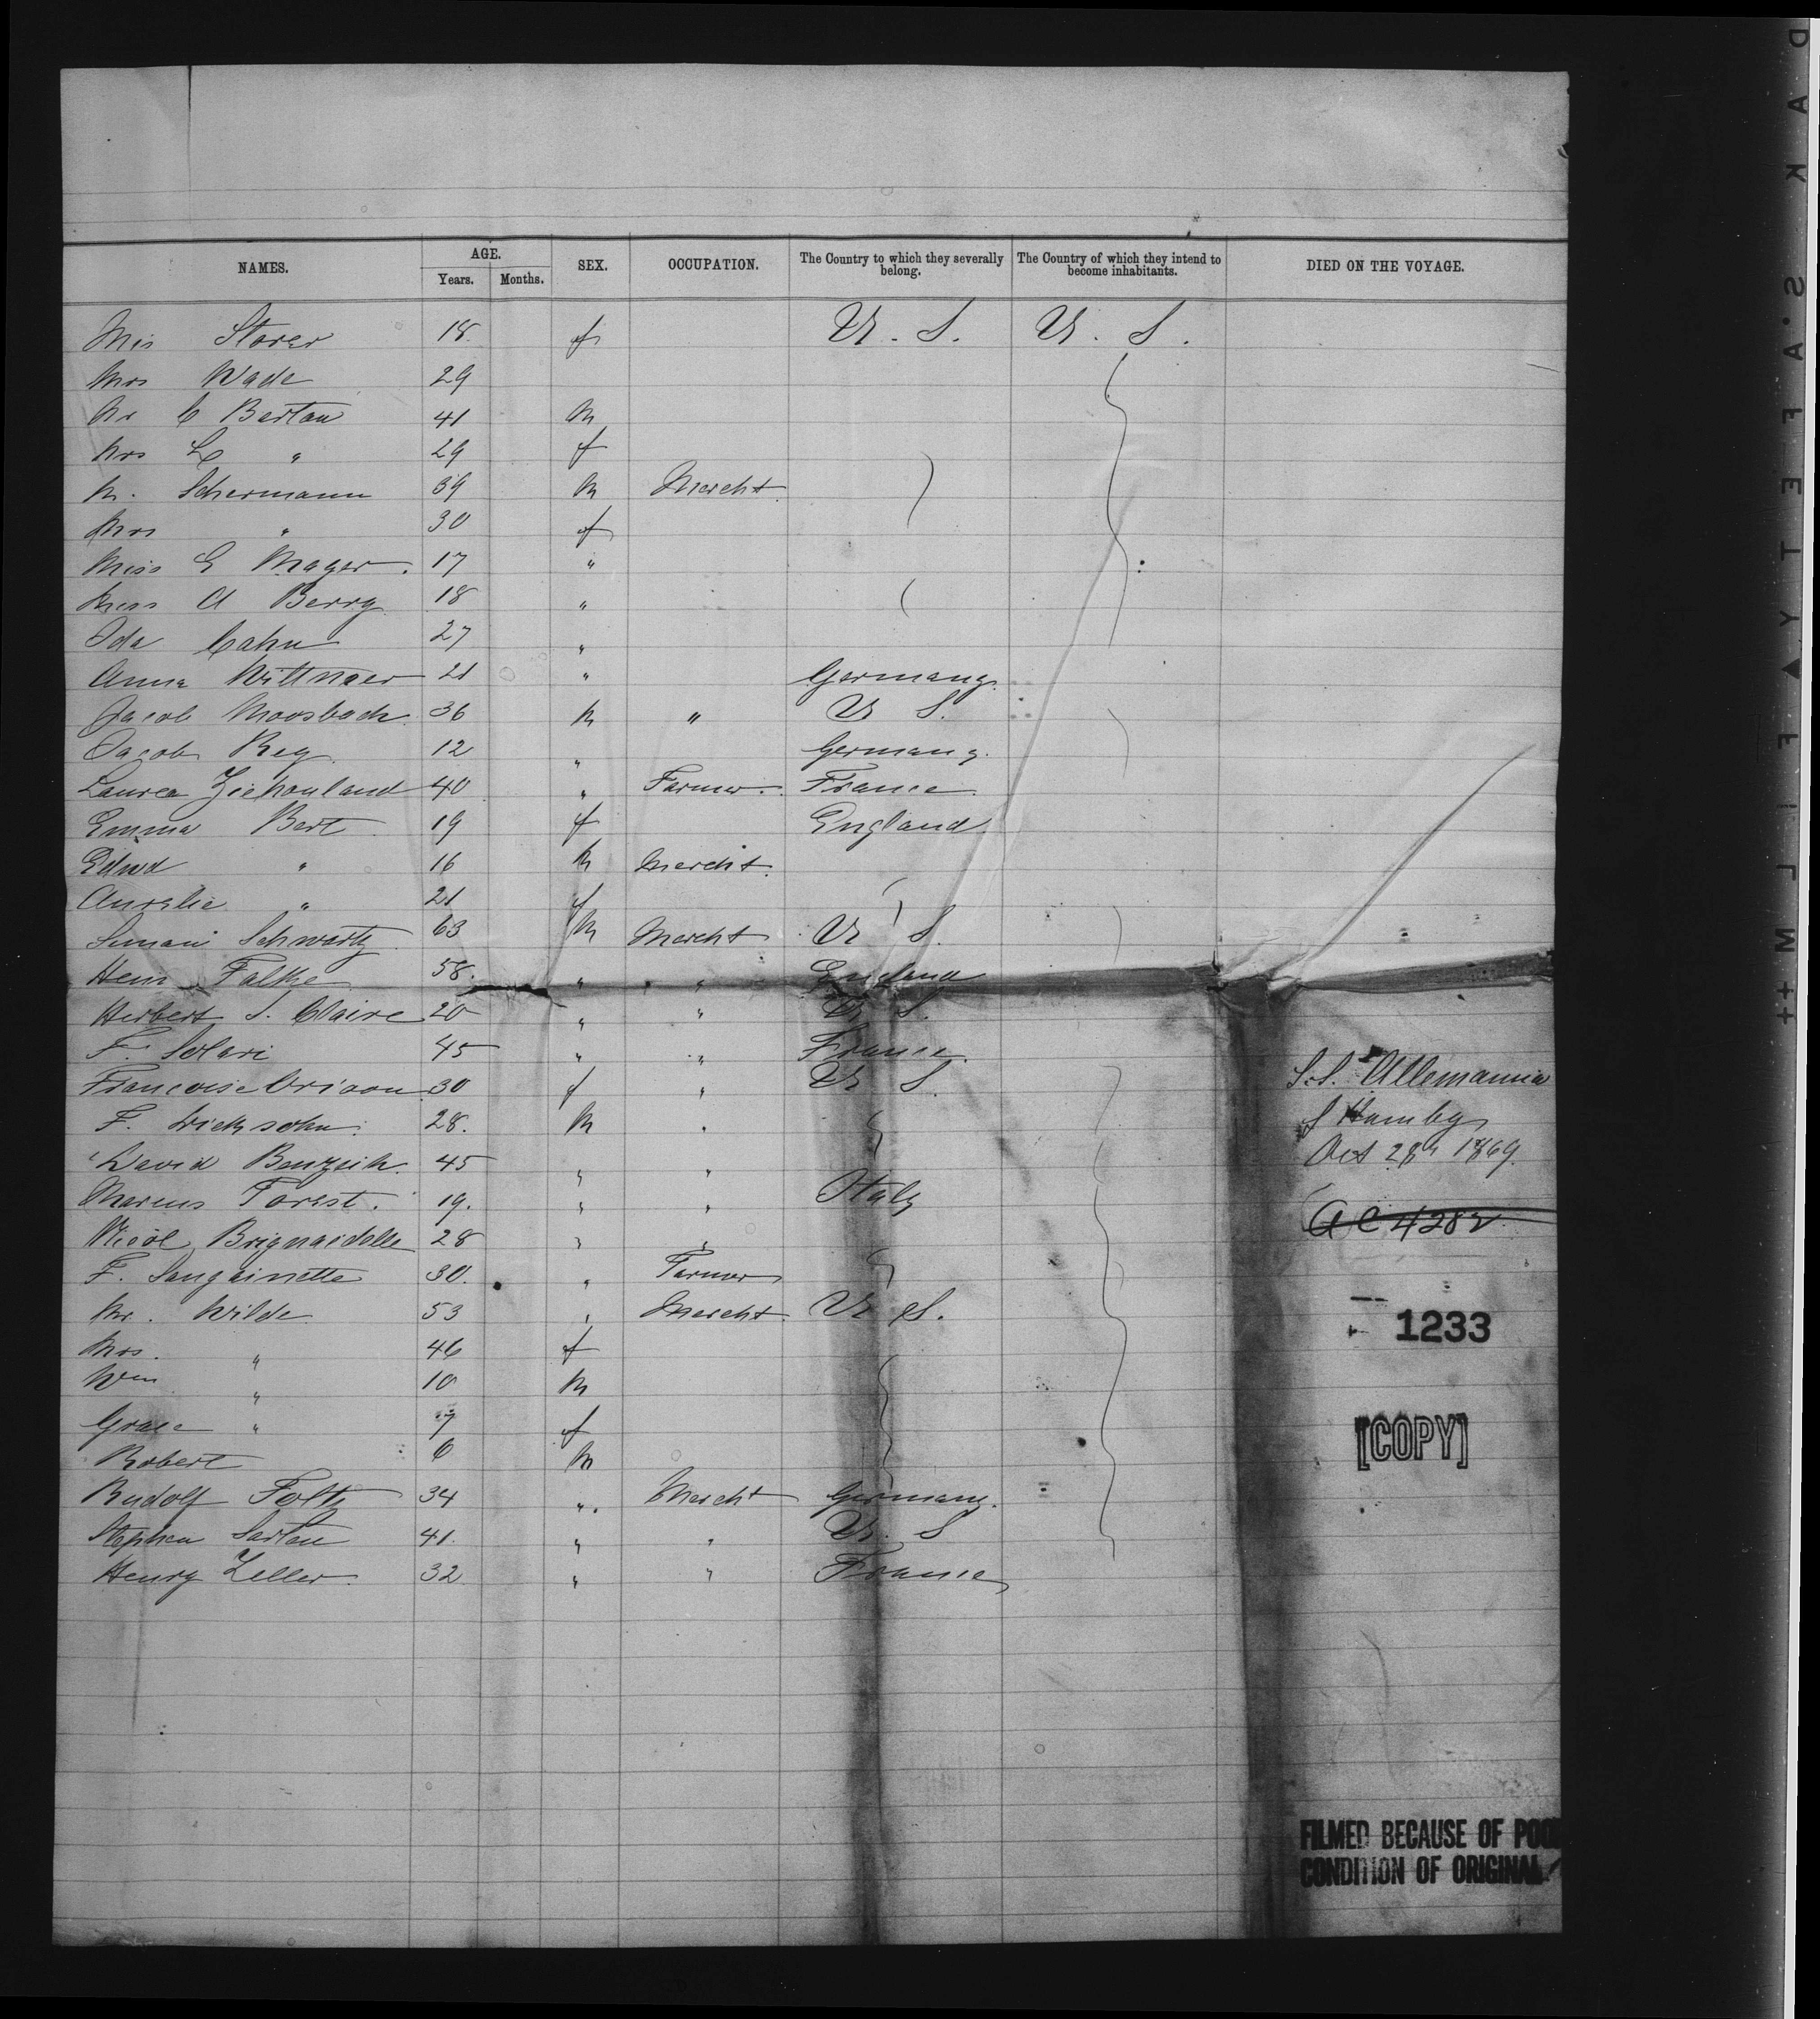 NAMES. AGE. Years. Months. SEX. OCCUPATION. The Country to which they severally belong. The Country of which they intend to become inhabitants. DIED ON THE VOYAGE.
Mis Storer 18. f U. S. U. S.
Mrs Wade 29
Mr C Bertau 41 M
Mrs L " 29 f
M. Schermann 39 M Mercht
Mrs " 30 f
Miss E Mayer. 17 "
Miss A Berry 18 "
Ida Cahn 27 "
Anna Wittmaer 21 " Germany.
Jacob Moosbach 36 M " U S.
Jacob Rey 12 " Germany.
Laurea 40 " Farmer. France.
Emma Bert 19 f England
Edwd " 16 M Mercht.
Aurelie " 21 f
Schwartz 63 M Mercht U S.
Hein Falke 58. " " England
Herbert S. Claire 20 " " U S.
F. Solari 45 " " France.
Francoise 30 f " U S.
F. Dicksohn. 28. M "
David 45 " "
Marcus Forest. 19. " " Italy
Nicol 28 " "
F. Sanguinette 30. " Farmer
Mr. Wilde 53 " Mercht U S.
Mrs. " 46 f
Wm " 10 M
Grace " 7 f
Robert 6 M
Rudolf Foltz 34 ". Mercht Germany.
Stephen Sartau 41. " " U. S
Henry Zeller. 32 " " France
S.S. Allemannia
f Hambg
Oct 28th 1869.
1233
[COPY]
FILMED BECAUSE OF POO
CONDITION OF ORIGINAL